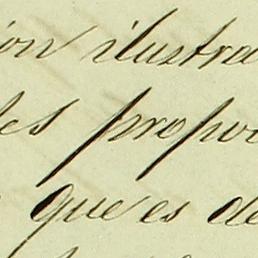 ión ilustra
les propor
que es de